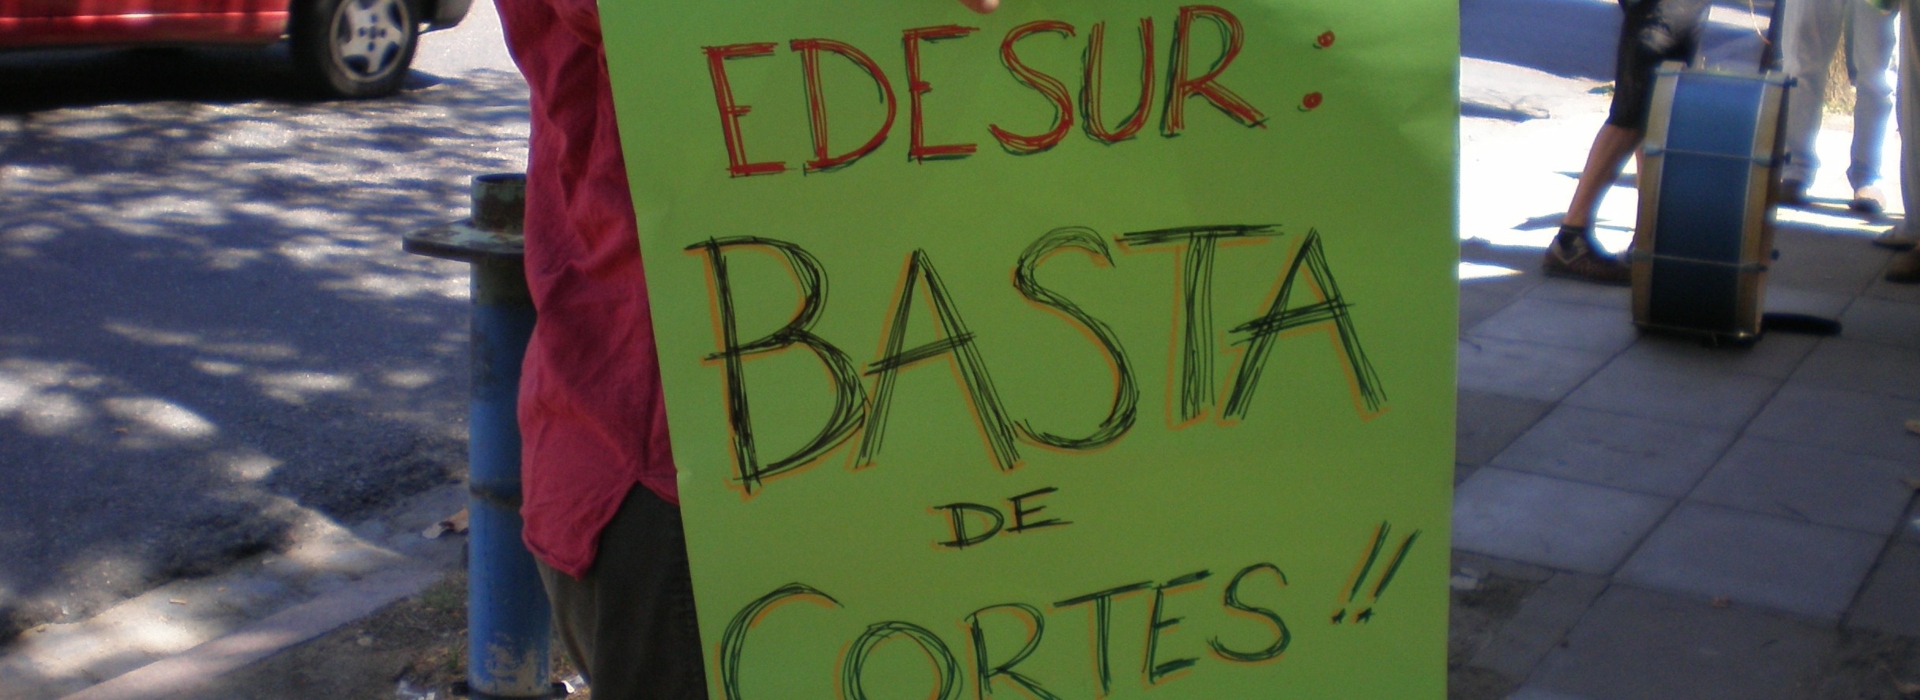 EDESUR:
BASTA
DE
CORTES!!